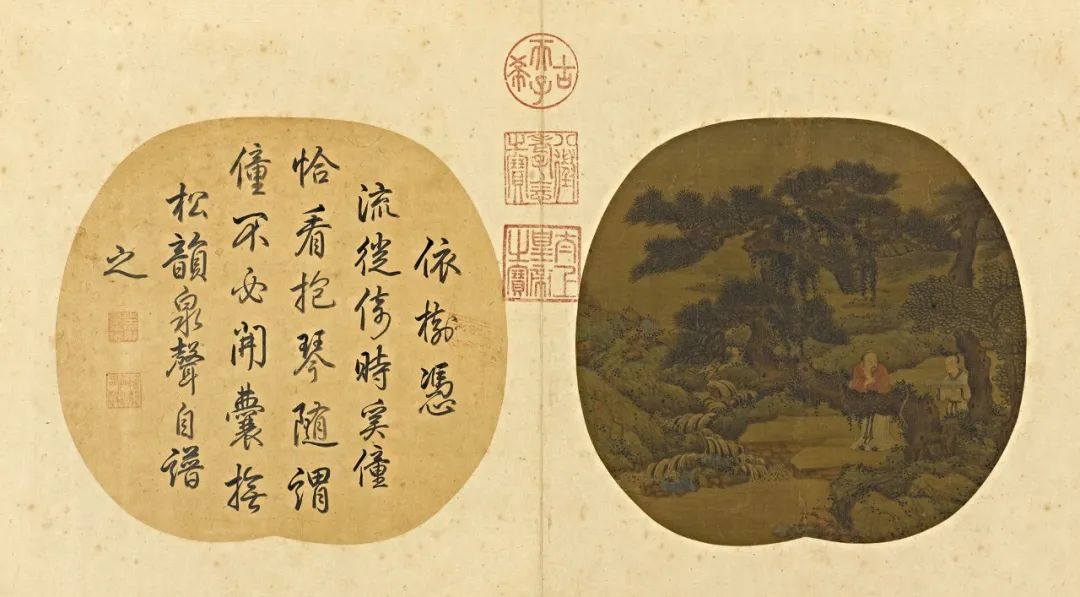 古希天子
八徵耄念之寶
太上皇帝之寶
依樹憑
流徙倚時奚僮
恰看抱琴隨謂
僮不必開囊撫
松韻泉聲自譜
之